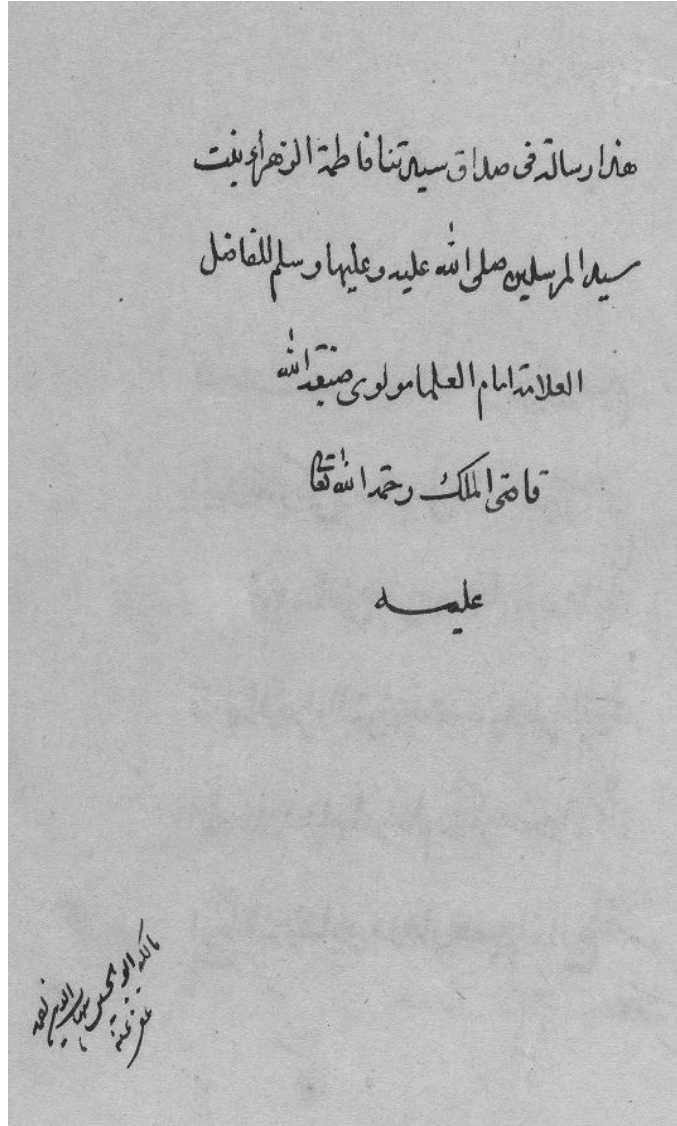 هذا رسالة في صداق سيدتنا فاطمة الزهراء بنت
سيد المرسلين صلى الله عليه وعليها وسلم للفاضل
العلامة امام العلما مولوى صبغة الله
قاضى الملك رحمة الله تعا
عليه
مالكه ابو محمد
عفى عنه